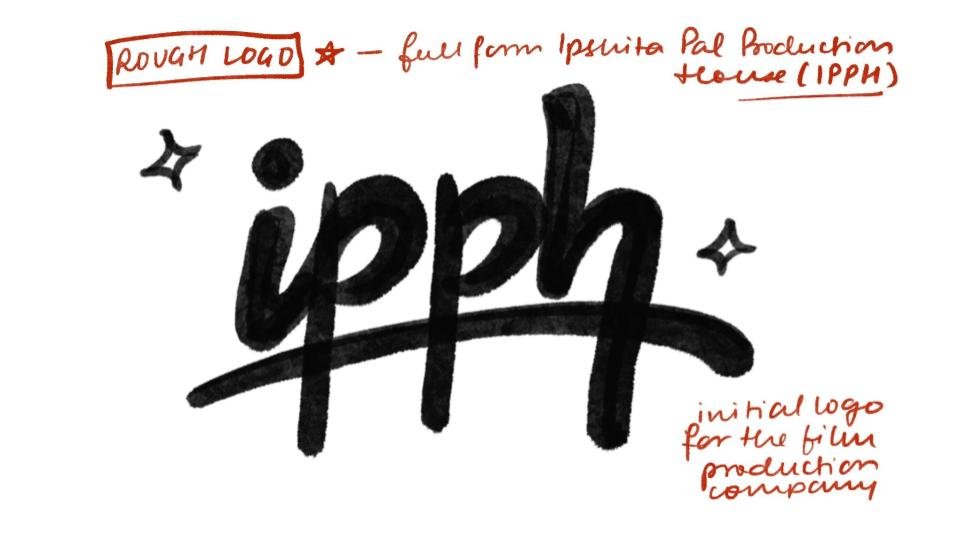 ROUGH LOGO ☆ — full form Ipshita Pal Production
House (IPPH)
ipph
initial logo
for the film
production
company